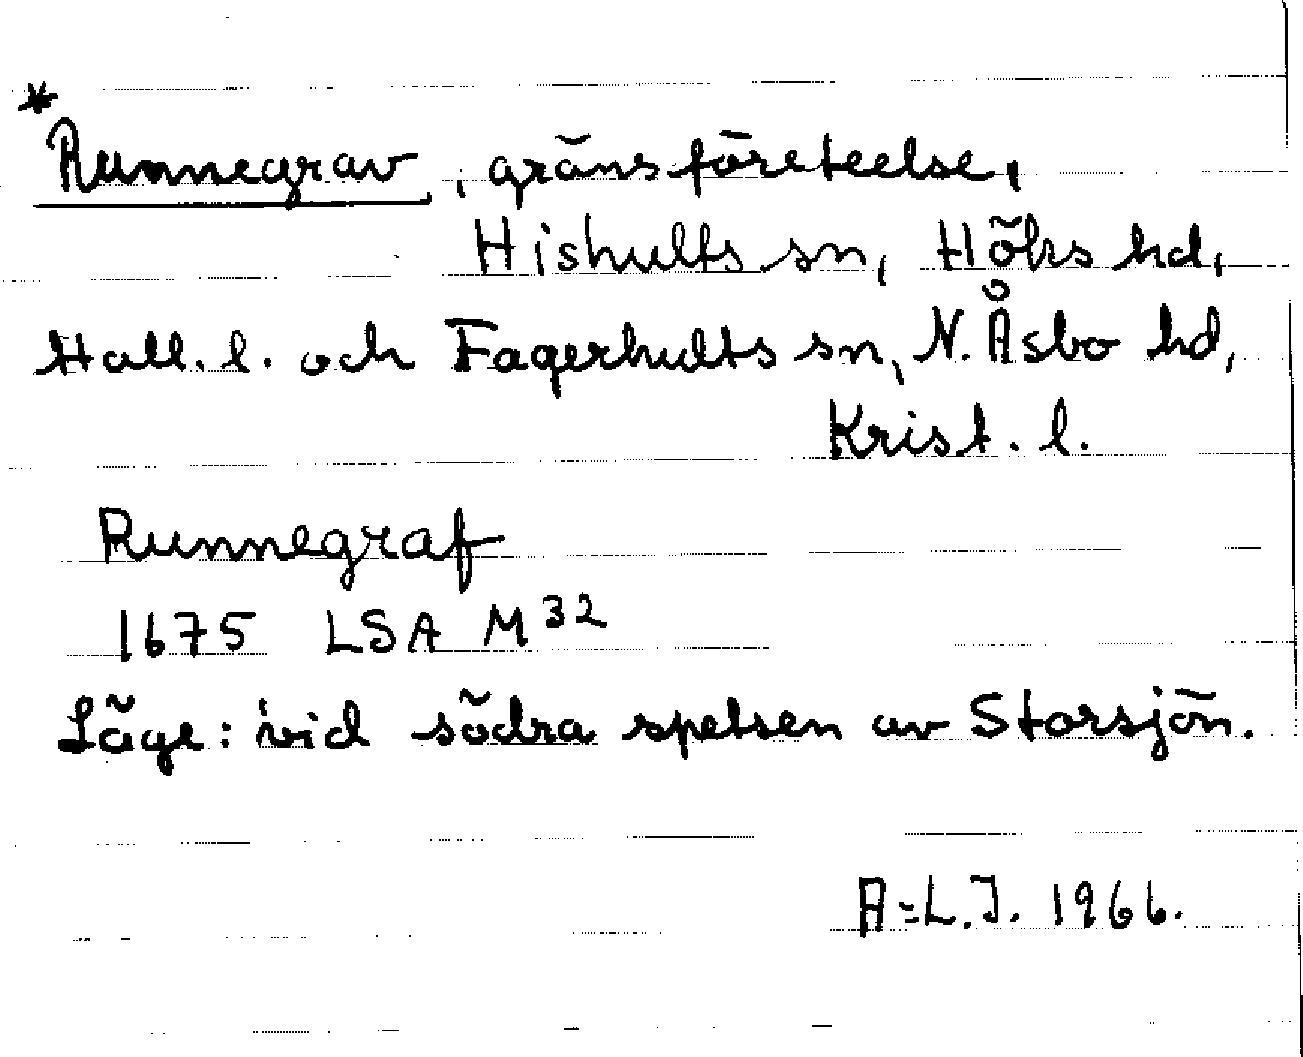 *Runnegrav, gränsföreteelse,
Hishults sn, Höks hd,
Hall. l. och Fagerhults sn, N. Åsbo hd,
Krist. l.
Runnegraf
1675 LSA M32
Läge: vid södra spetsen av Storsjön.
A-L.J. 1966.